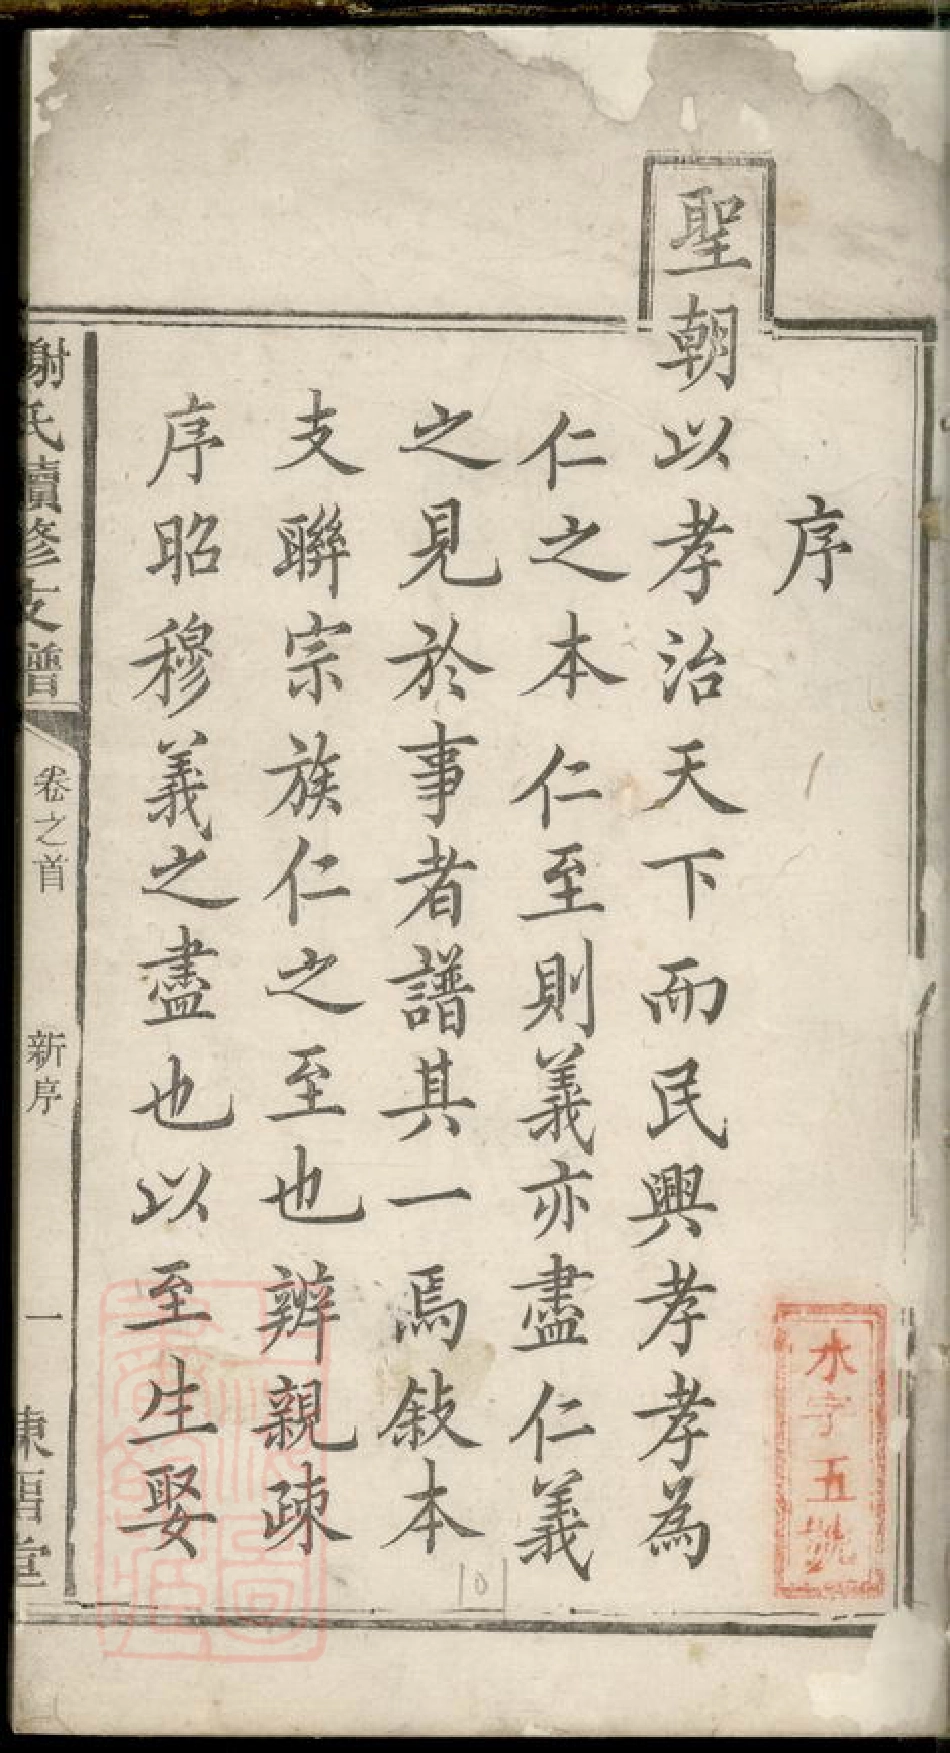 序
聖朝以孝治天下而民興孝孝為
仁之本仁至則義亦盡仁義
之見於事者譜其一焉敍本
支聯宗族仁之至也辨親疎
序昭穆義之盡也以至生娶
謝氏續修支譜
卷之首
新序
一
東晉堂
水字五號